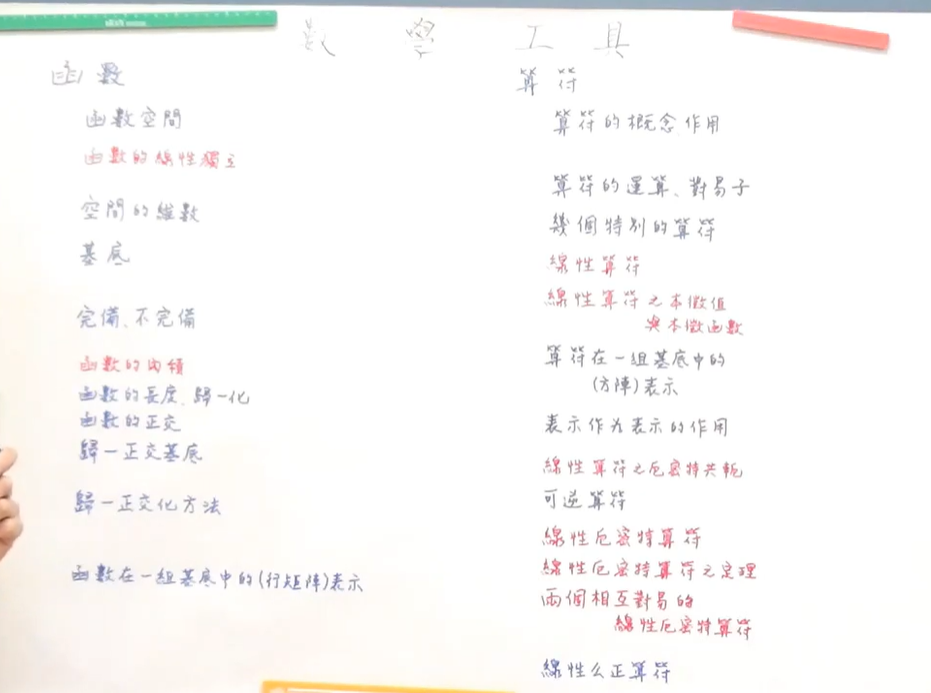 數學工具
函數
函數空間
函數的線性獨立
空間的維數
基底
完備、不完備
函數的內積
函數的長度、歸一化
函數的正交
歸一正交基底
歸一正交化方法
函數在一組基底中的(行矩陣)表示
算符
算符的概念作用
算符的運算、對易子
幾個特別的算符
線性算符
線性算符之本徵值
與本徵函數
算符在一組基底中的
(方陣)表示
表示作为表示的作用
線性算符之厄密特共軛
可逆算符
線性厄密特算符
線性厄密特算符之定理
兩個相互對易的
線性厄密特算符
線性么正算符